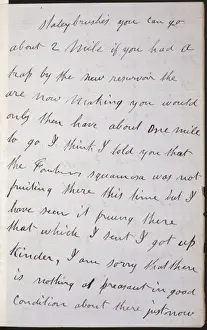 Staleybrushes you can go
about 2 mile if you had a
trap by the new reservoir the
are now making you would
only then have about one mile
to go I think I told you that
the squamosa was not
fruiting there this time but I
have seen it there
that which I sent I got up
Kinder, I am sorry that there
is nothing at preasant in good
condition about there just now